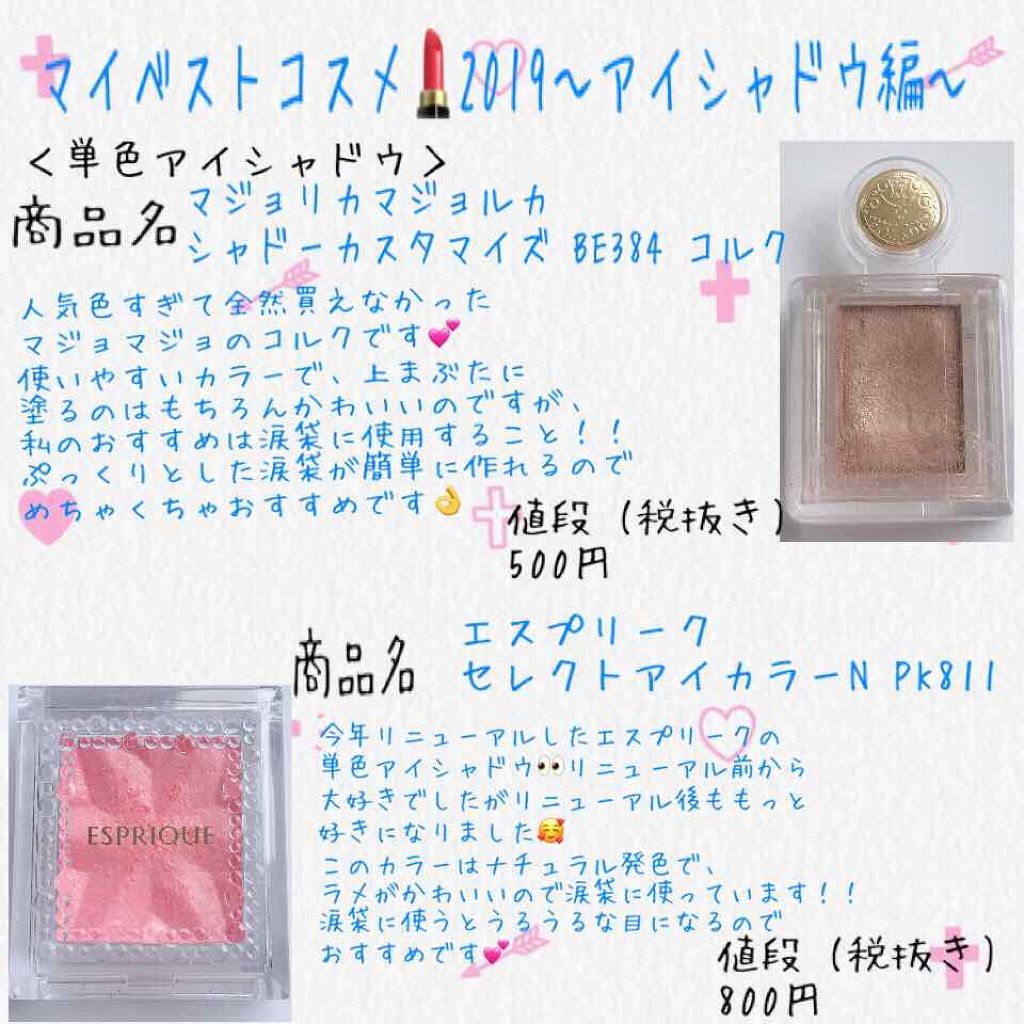 マイベストコスメ💄2019~アイシャドウ編~
<単色アイシャドウ>
商品名
マジョリカマジョルカ
シャドーカスタマイズ BE384 コルク
人気色すぎて全然買えなかった
マジョマジョのコルクです💕
使いやすいカラーで、上まぶたに
塗るのはもちろんかわいいのですが、
私のおすすめは涙袋に使用すること!!
ぷっくりとした涙袋が簡単に作れるので
めちゃくちゃおすすめです👌
値段(税抜き)
500円
商品名
エスプリーク
セレクトアイカラーN PK811
今年リニューアルしたエスプリークの
単色アイシャドウ👀リニューアル前から
大好きでしたがリニューアル後ももっと
好きになりました🥰
このカラーはナチュラル発色で、
ラメがかわいいので涙袋に使っています!!
涙袋に使うとうるうるな目になるので
おすすめです💕
値段(税抜き)
800円
ESPRIQUE